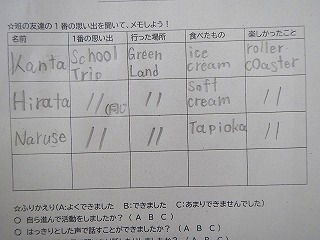 ☆班の友達の1番の思い出を聞いて、メモしよう!
名前 1番の思い出 行った場所 食べたもの 楽しかったこと
Kanta School Trip Green Land ice cream roller coaster
Hirata 〃(同じ) 〃 soft cream 〃
Naruse 〃 〃 Tapioka 〃
☆ふりかえり(A:よくできました B:できました C:あまりできませんでした)
○ 自ら進んで活動をしましたか?( A B C )
○ はっきりとした声で話すことができましたか?( A B C )